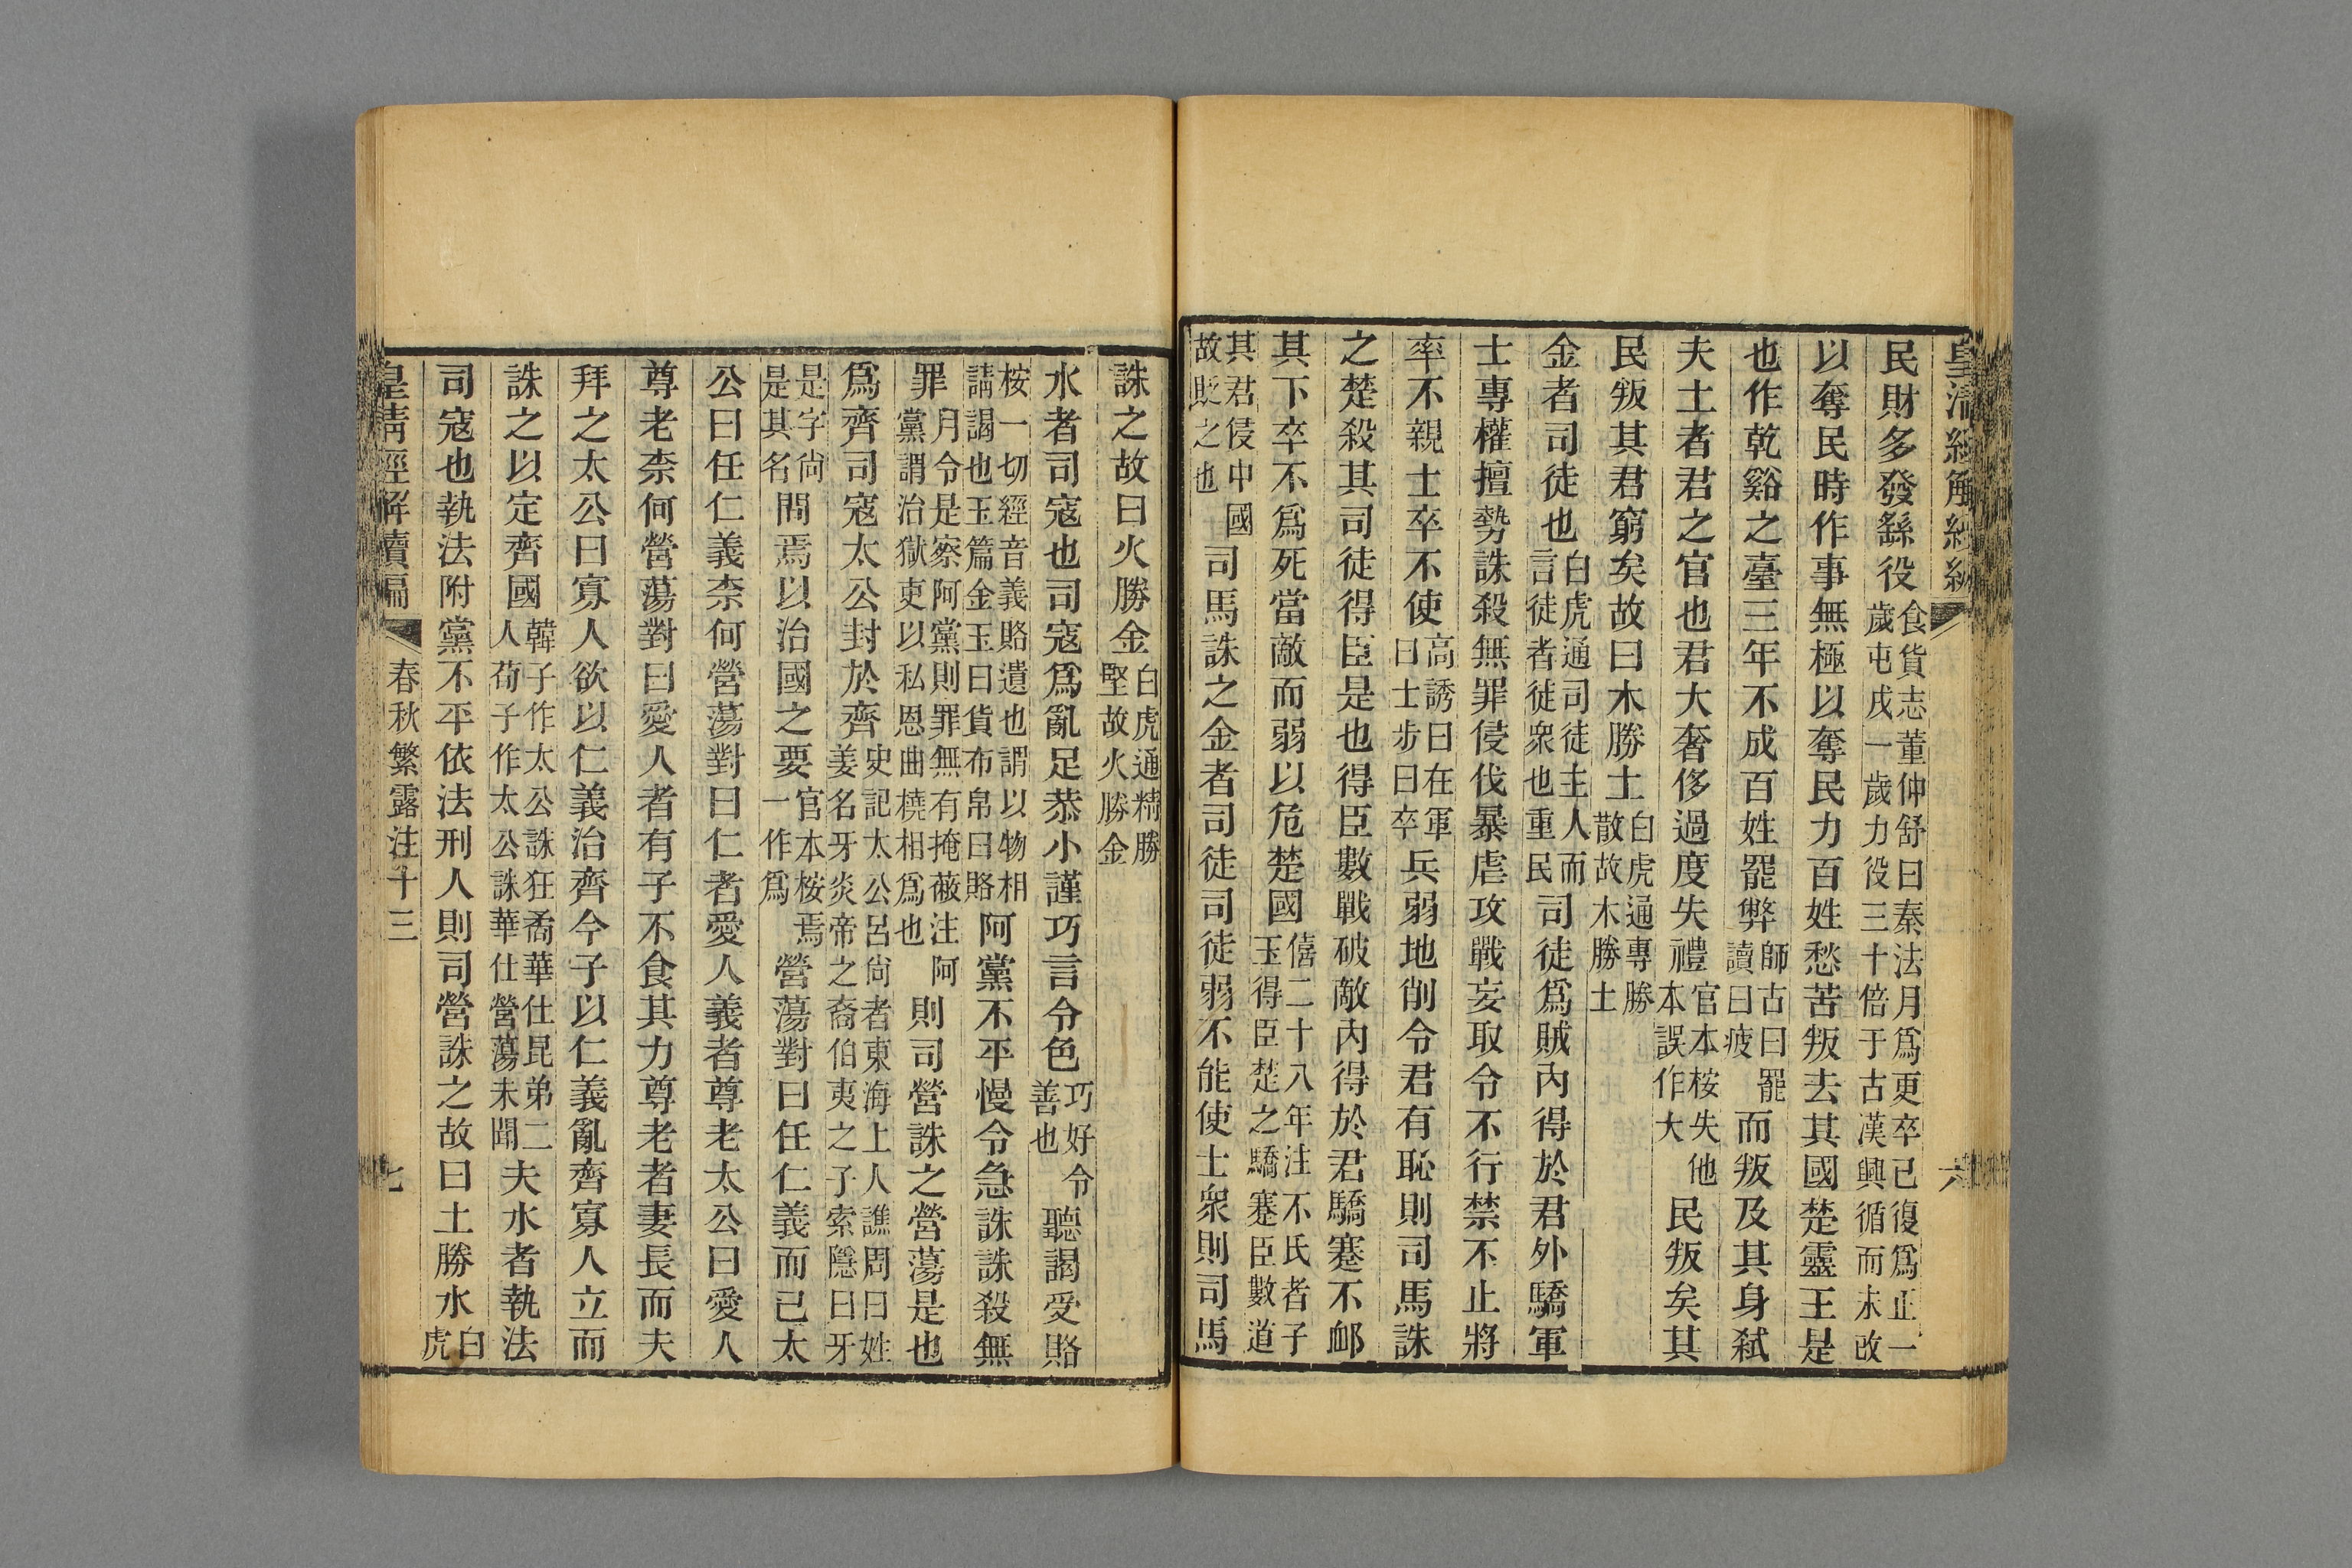 皇清經解續編 六
民財多發繇役食貨志董仲舒曰秦法月爲更卒已復爲正一歲屯戍一歲力役三十倍于古漢興循而未改
以奪民時作事無極以奪民力百姓愁苦叛去其國楚靈王是
也作乾谿之臺三年不成百姓罷弊師古曰罷讀曰疲而叛及其身弒
夫土者君之官也君大奢侈過度失禮官本桉失他本誤作大民叛矣其
民叛其君窮矣故曰木勝土白虎通專勝散故木勝土
金者司徒也白虎通司徒主人而言徒者徒衆也重民司徒爲賊內得於君外驕軍
士專權擅勢誅殺無罪侵伐暴虐攻戰妄取令不行禁不止將
率不親士卒不使高誘曰在軍曰士步曰卒兵弱地削令君有恥則司馬誅
之楚殺其司徒得臣是也得臣數戰破敵內得於君驕蹇不卹
其下卒不爲死當敵而弱以危楚國僖二十八年注不氏者子玉得臣楚之驕蹇臣數道
其君侵中國故貶之也司馬誅之金者司徒司徒弱不能使士衆則司馬
誅之故曰火勝金白虎通精勝堅故火勝金
水者司寇也司寇爲亂足恭小謹巧言令色巧好令善也聽謁受賂
桉一切經音義賂遺也謂以物相請謁也玉篇金玉曰貨布帛曰賂阿黨不平慢令急誅誅殺無
罪月令是察阿黨則罪無有掩蔽注阿黨謂治獄吏以私恩曲橈相爲也則司營誅之營蕩是也
爲齊司寇太公封於齊史記太公呂尙者東海上人譙周曰姓姜名牙炎帝之裔伯夷之子索隱曰牙
是字尙是其名問焉以治國之要官本桉焉一作爲營蕩對曰任仁義而已太
公曰任仁義柰何營蕩對曰仁者愛人義者尊老太公曰愛人
尊老柰何營蕩對曰愛人者有子不食其力尊老者妻長而夫
拜之太公曰寡人欲以仁義治齊今子以仁義亂齊寡人立而
誅之以定齊國韓子作太公誅狂矞華仕昆弟二人荀子作太公誅華仕營蕩未聞夫水者執法
司寇也執法附黨不平依法刑人則司營誅之故曰土勝水白虎
皇清經解續編 春秋繁露注十三 七